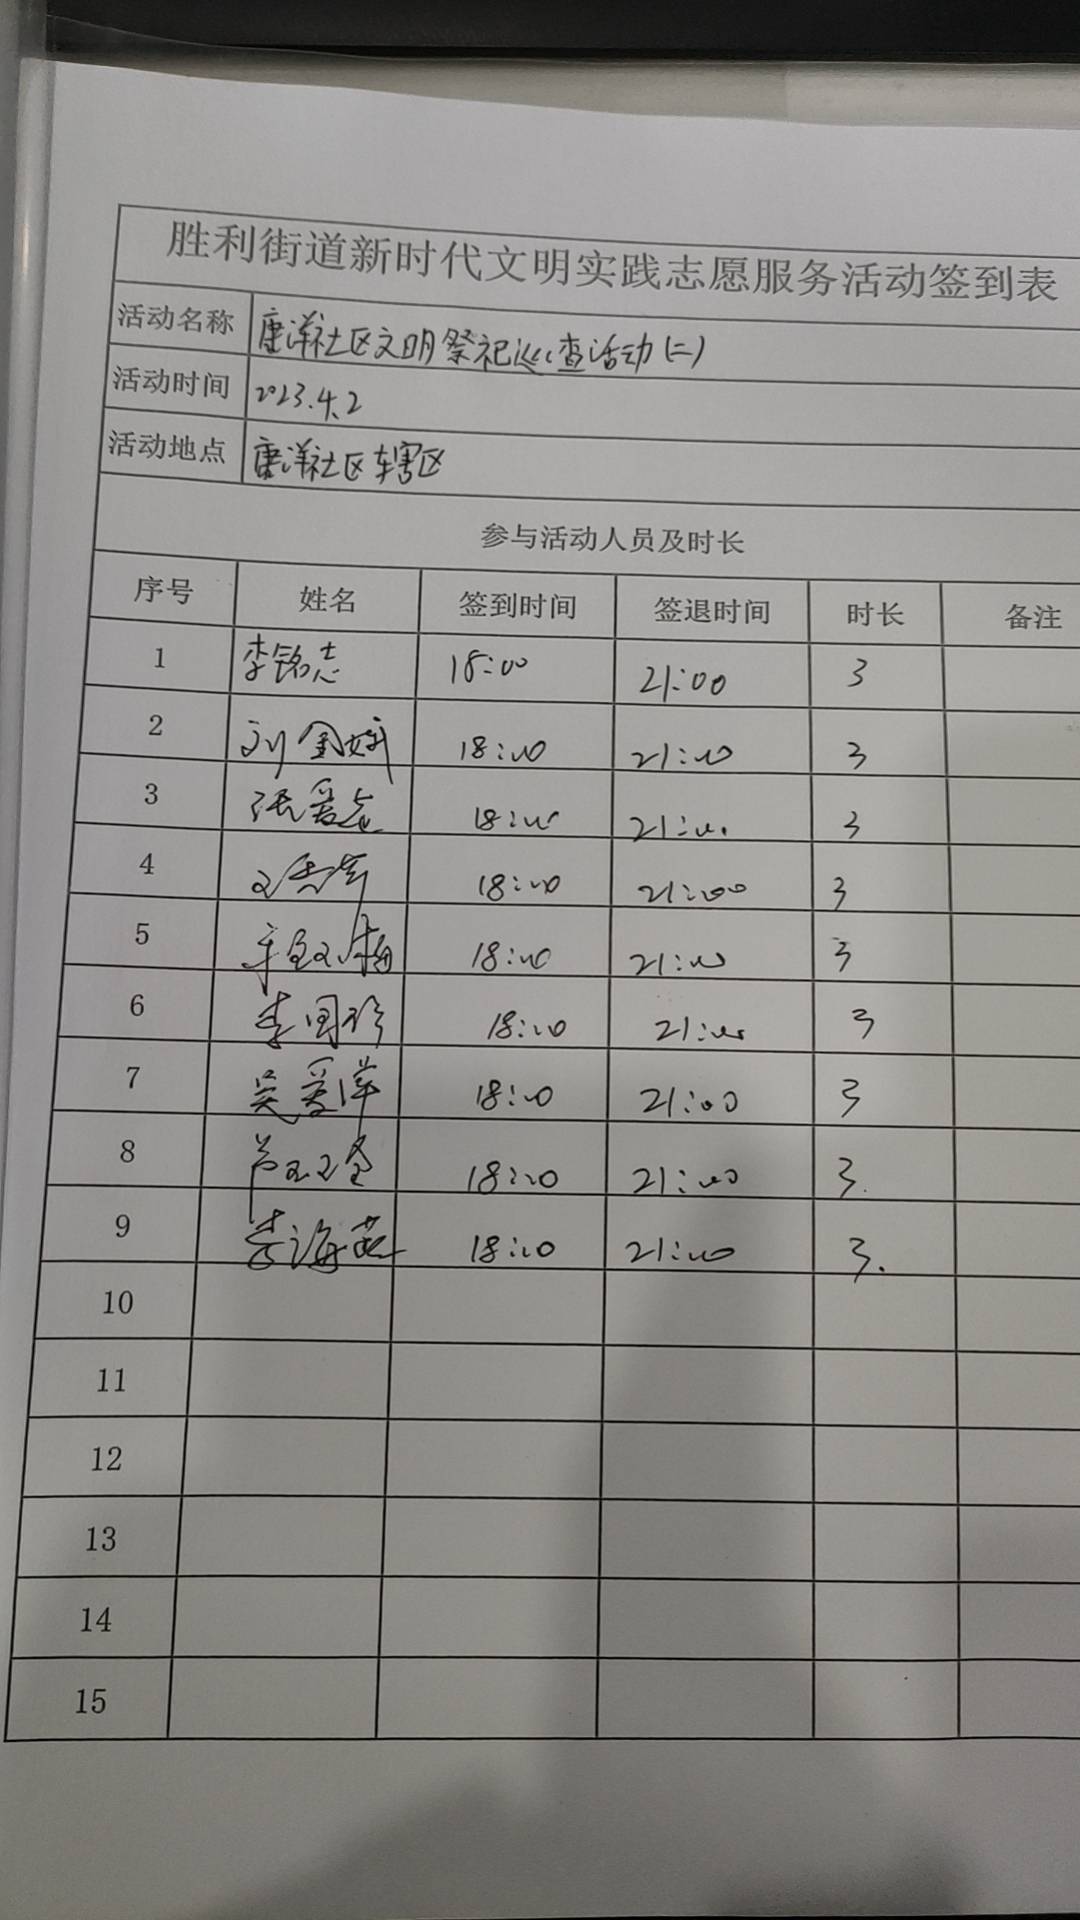 胜利街道新时代文明实践志愿服务活动签到表
活动名称 唐洋社区文明祭祀巡查活动(二)
活动时间 2023.4.2
活动地点 唐洋社区辖区
参与活动人员及时长
序号 姓名 签到时间 签退时间 时长 备注
1 李铭志 18:00 21:00 3
2 刘金娥 18:00 21:00 3
3 张爱 18:00 21:00 3
4 18:00 21:00 3
5 18:00 21:00 3
6 李国珍 18:00 21:00 3
7 吴爱萍 18:00 21:00 3
8 18:00 21:00 3.
9 李海燕 18:00 21:00 3.
10
11
12
13
14
15